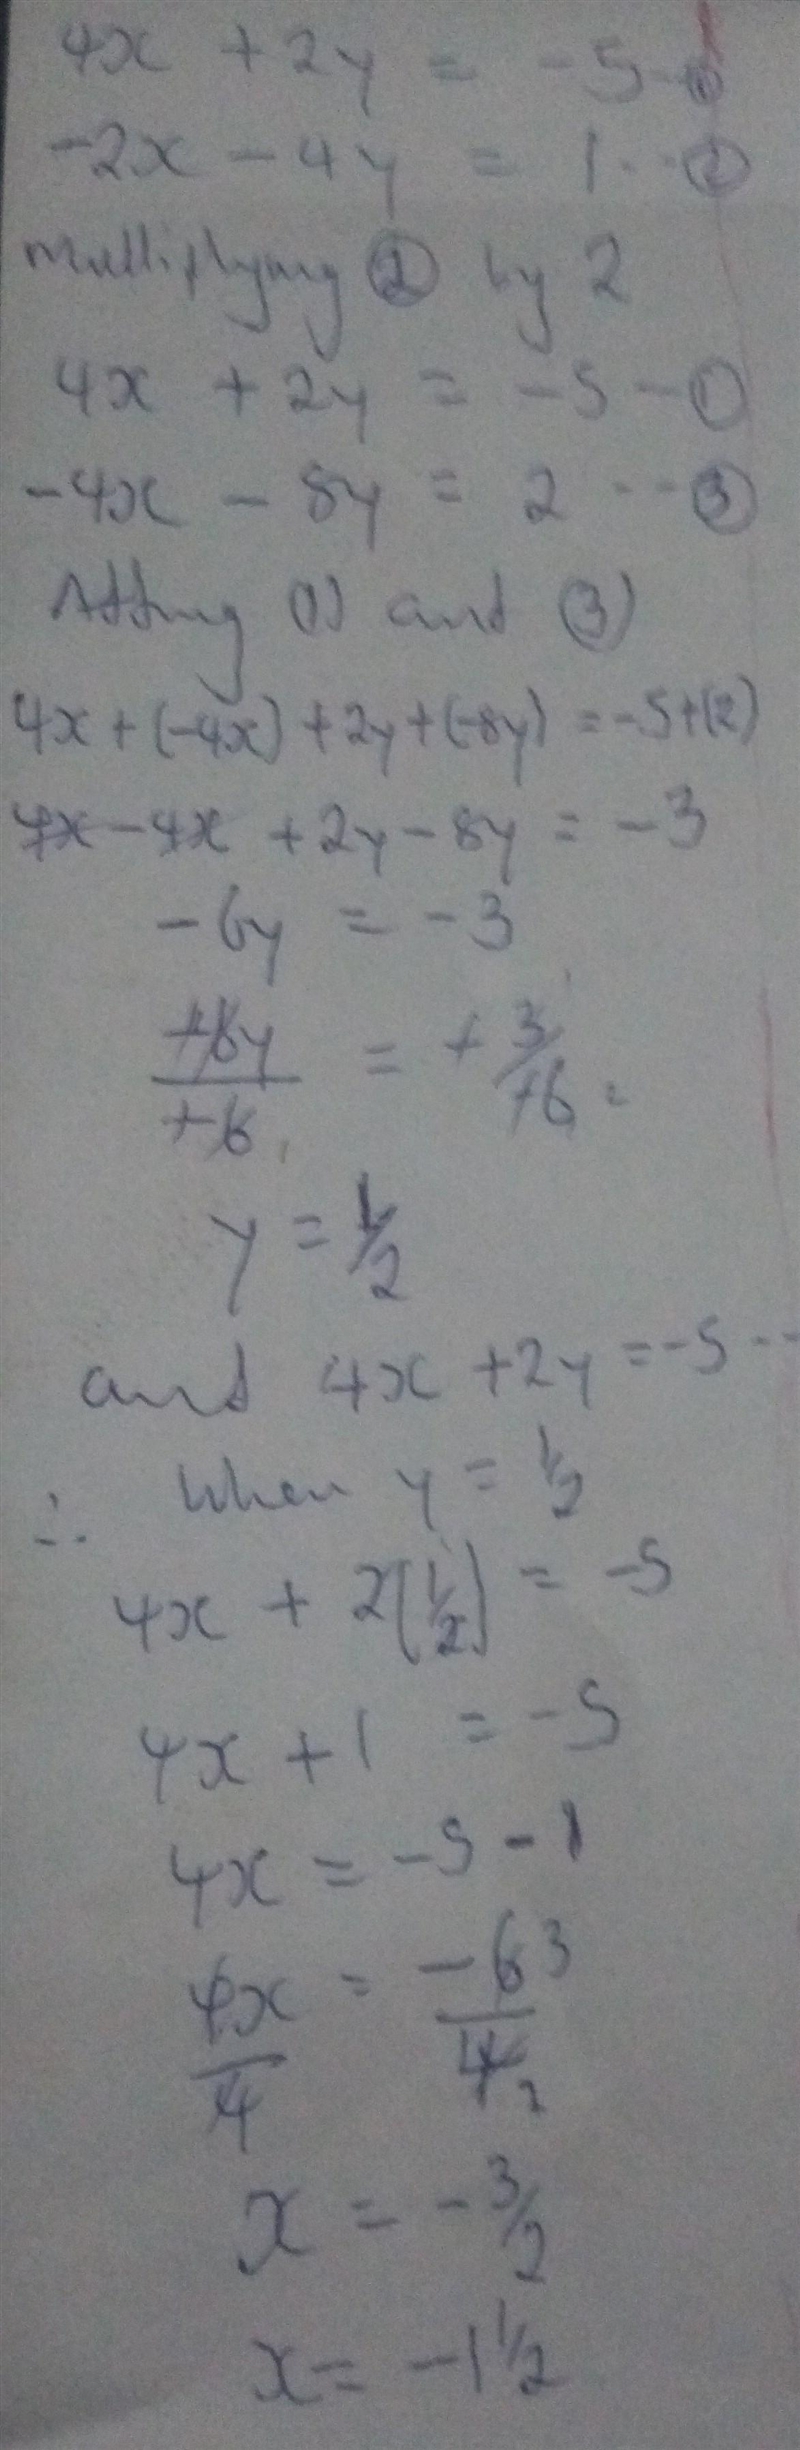 4x + 2y = -5 - ①
-2x - 4y = 1 -- ②
Multiplying ② by 2
4x + 2y = -5 - ①
-4x - 8y = 2 -- ③
Adding (1) and (3)
4x + (-4x) + 2y + (-8y) = -5 + (2)
4x - 4x + 2y - 8y = -3
-6y = -3
+6y/+6 = +3/+6
y = 1/2
and 4x + 2y = -5 --
∴ When y = 1/2
4x + 2(1/2) = -5
4x + 1 = -5
4x = -5 - 1
4x/4 = -6 3/4 2
x = -3/2
x = -1 1/2